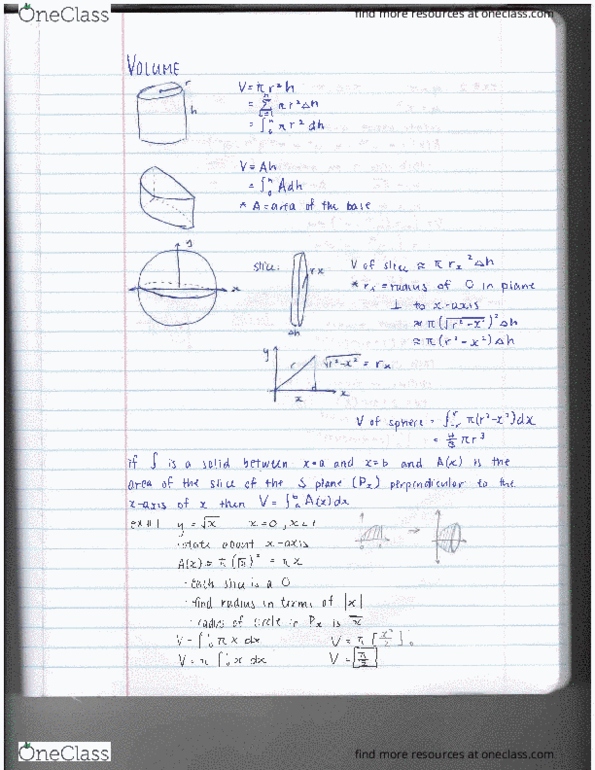 OneClass
find more resources at oneclass.com
VOLUME
r
h
V = π r² h
= Σ π r² Δh
= ∫₀ʰ π r² dh
V = Ah
= ∫₀ʰ A dh
* A = area of the base
y
x
slice:
rx
Δh
V of slice ≈ π rx² Δh
* rx = radius of O in plane
⊥ to x-axis
≈ π(√r² - x²)² Δh
≈ π(r² - x²) Δh
y
r
√r² - x² = rx
x
x
V of sphere = ∫₋ᵣʳ π(r² - x²)dx
= 4/3 πr³
if S is a solid between x=a and x=b and A(x) is the
area of the slice of the S plane (Px) perpendicular to the
x-axis of x then V = ∫ A(x)dx
ex #1 y = √x x=0, x=1
rotate about x-axis
A(x) = π(√x)² = πx
· each slice is a O
· find radius in terms of |x|
· radius of circle in Px is √x
V = ∫₀¹ π x dx
V = π [x²/2]₀¹
V = π ∫₀¹ x dx
V = π/2
OneClass
find more resources at oneclass.com